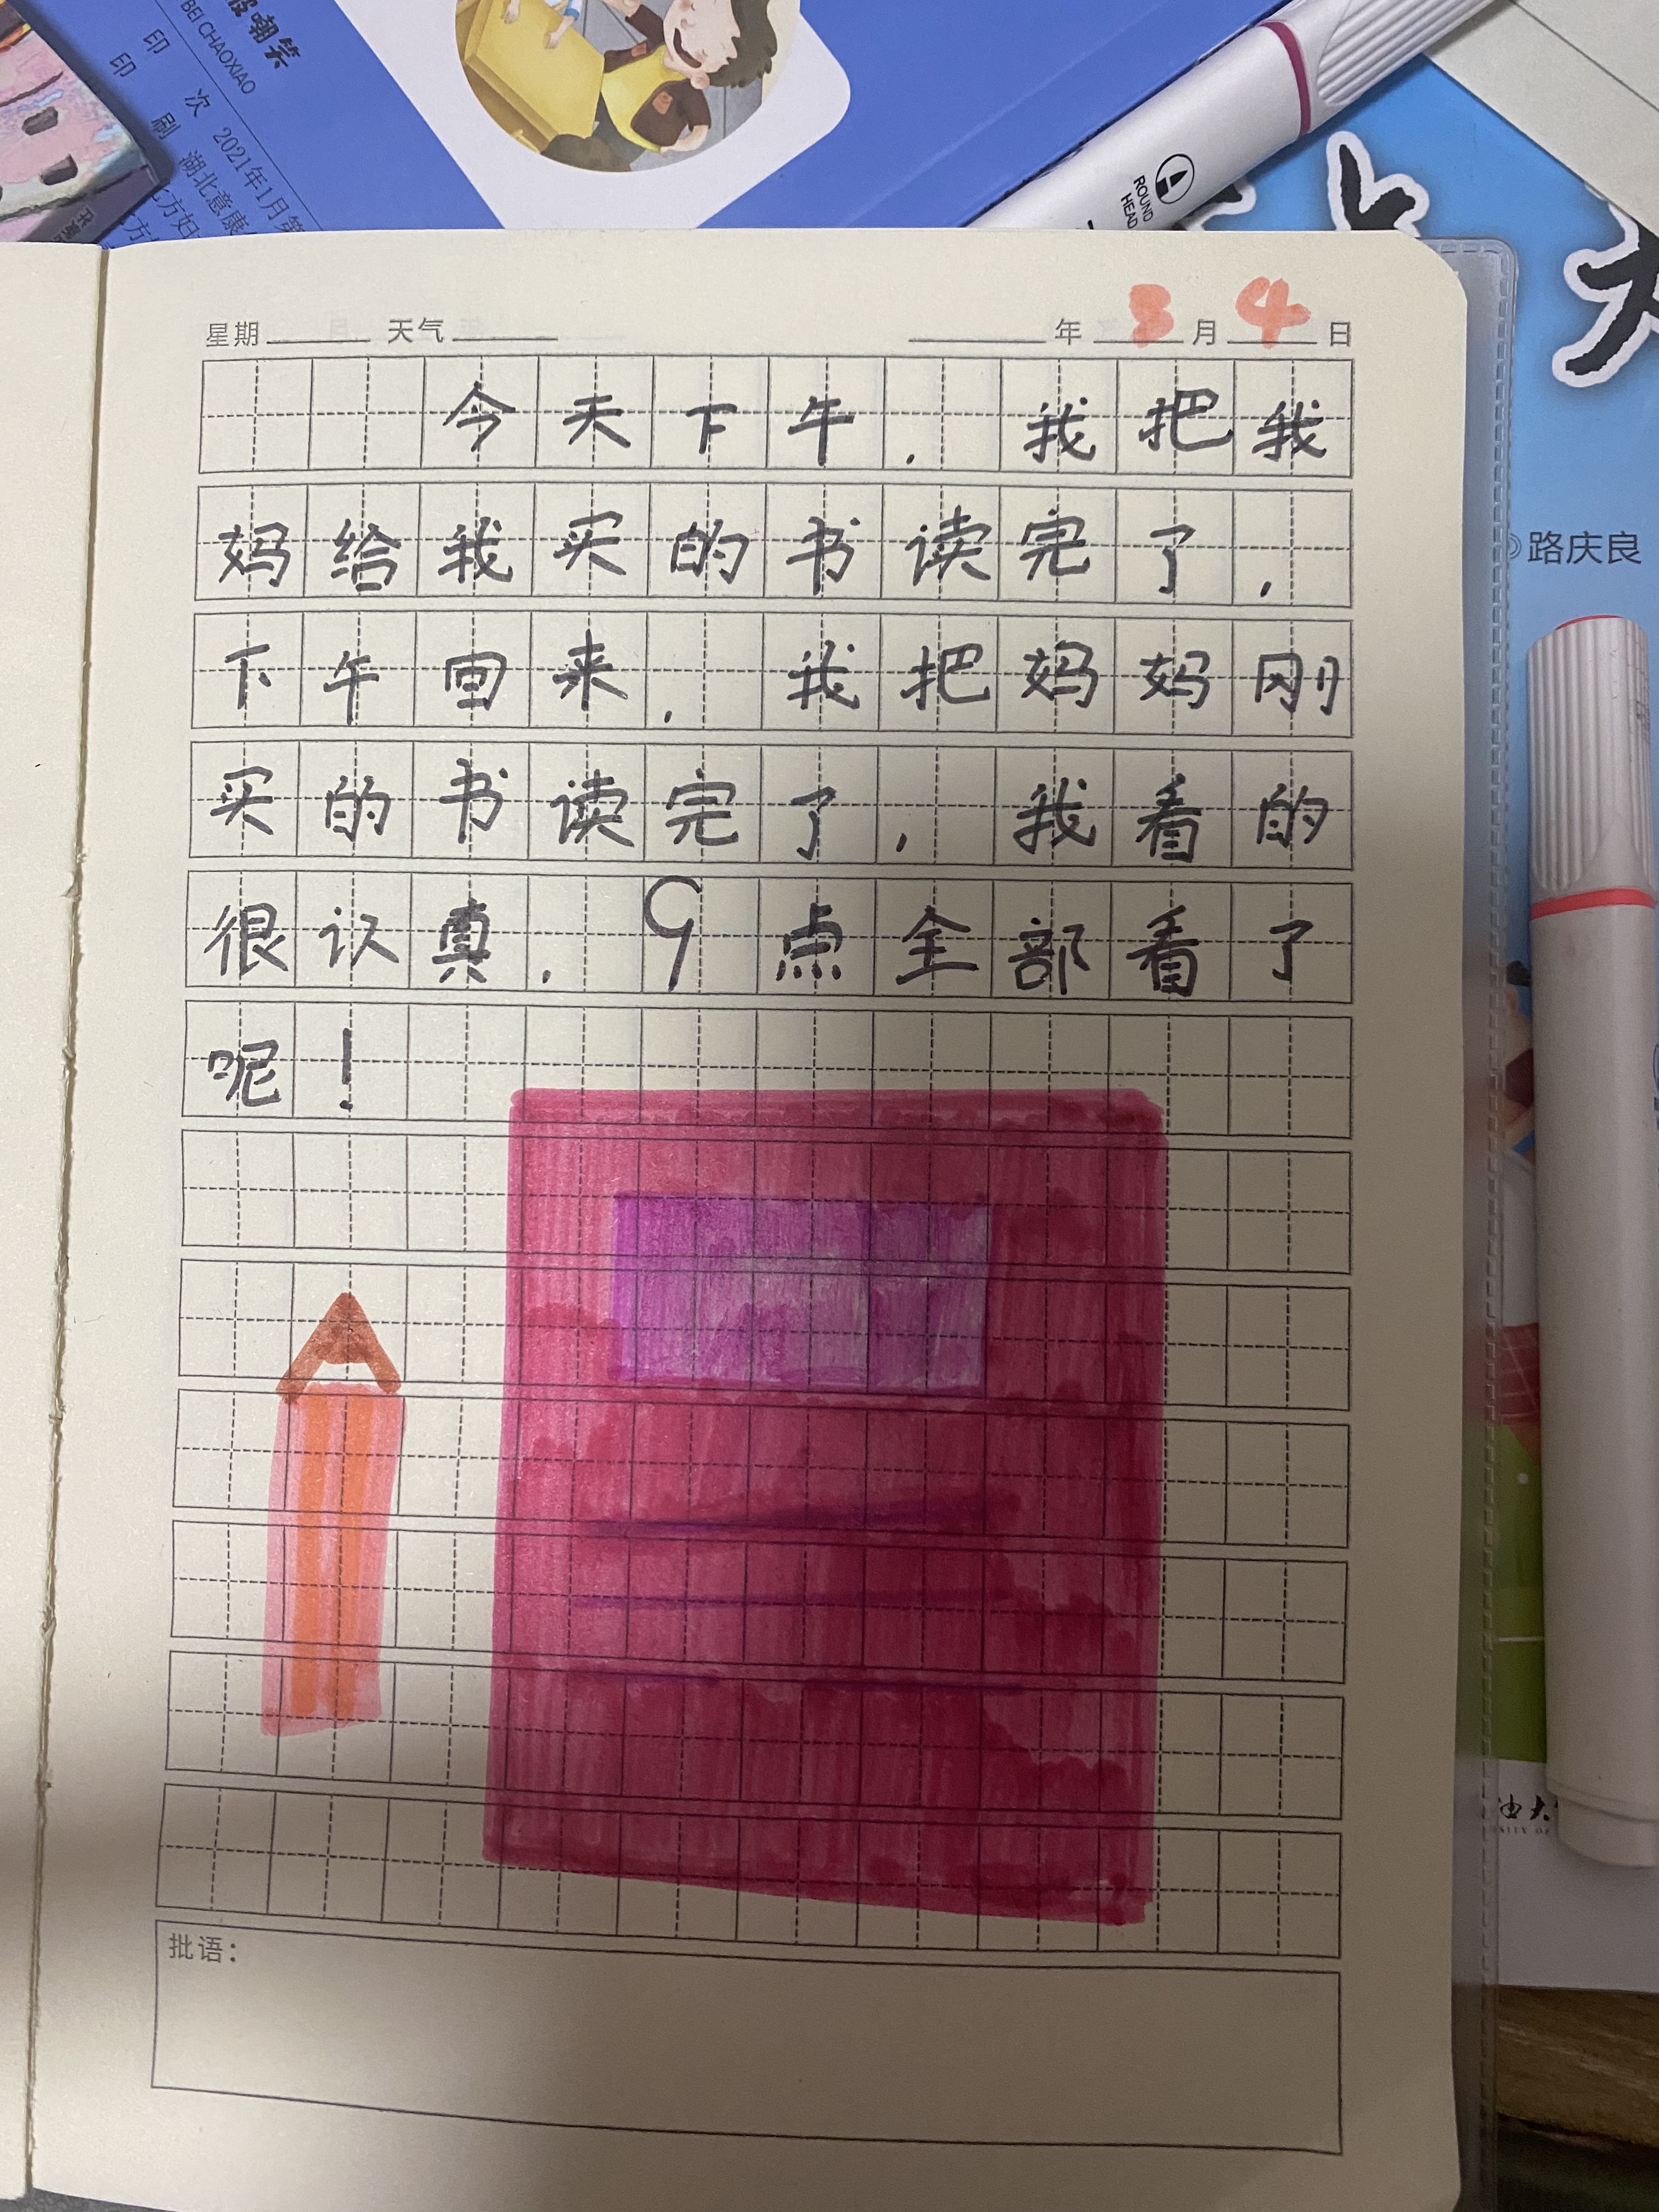 被嘲笑
BEI CHAOXIAO
印 次 2021年1月第
印 刷 湖北意康
北方妇
ROUND
HEAD
路庆良
星期 天气 年 3 月 4 日
今天下午,我把我
妈给我买的书读完了,
下午回来,我把妈妈刚
买的书读完了,我看的
很认真,9点全部看了
呢!
批语: